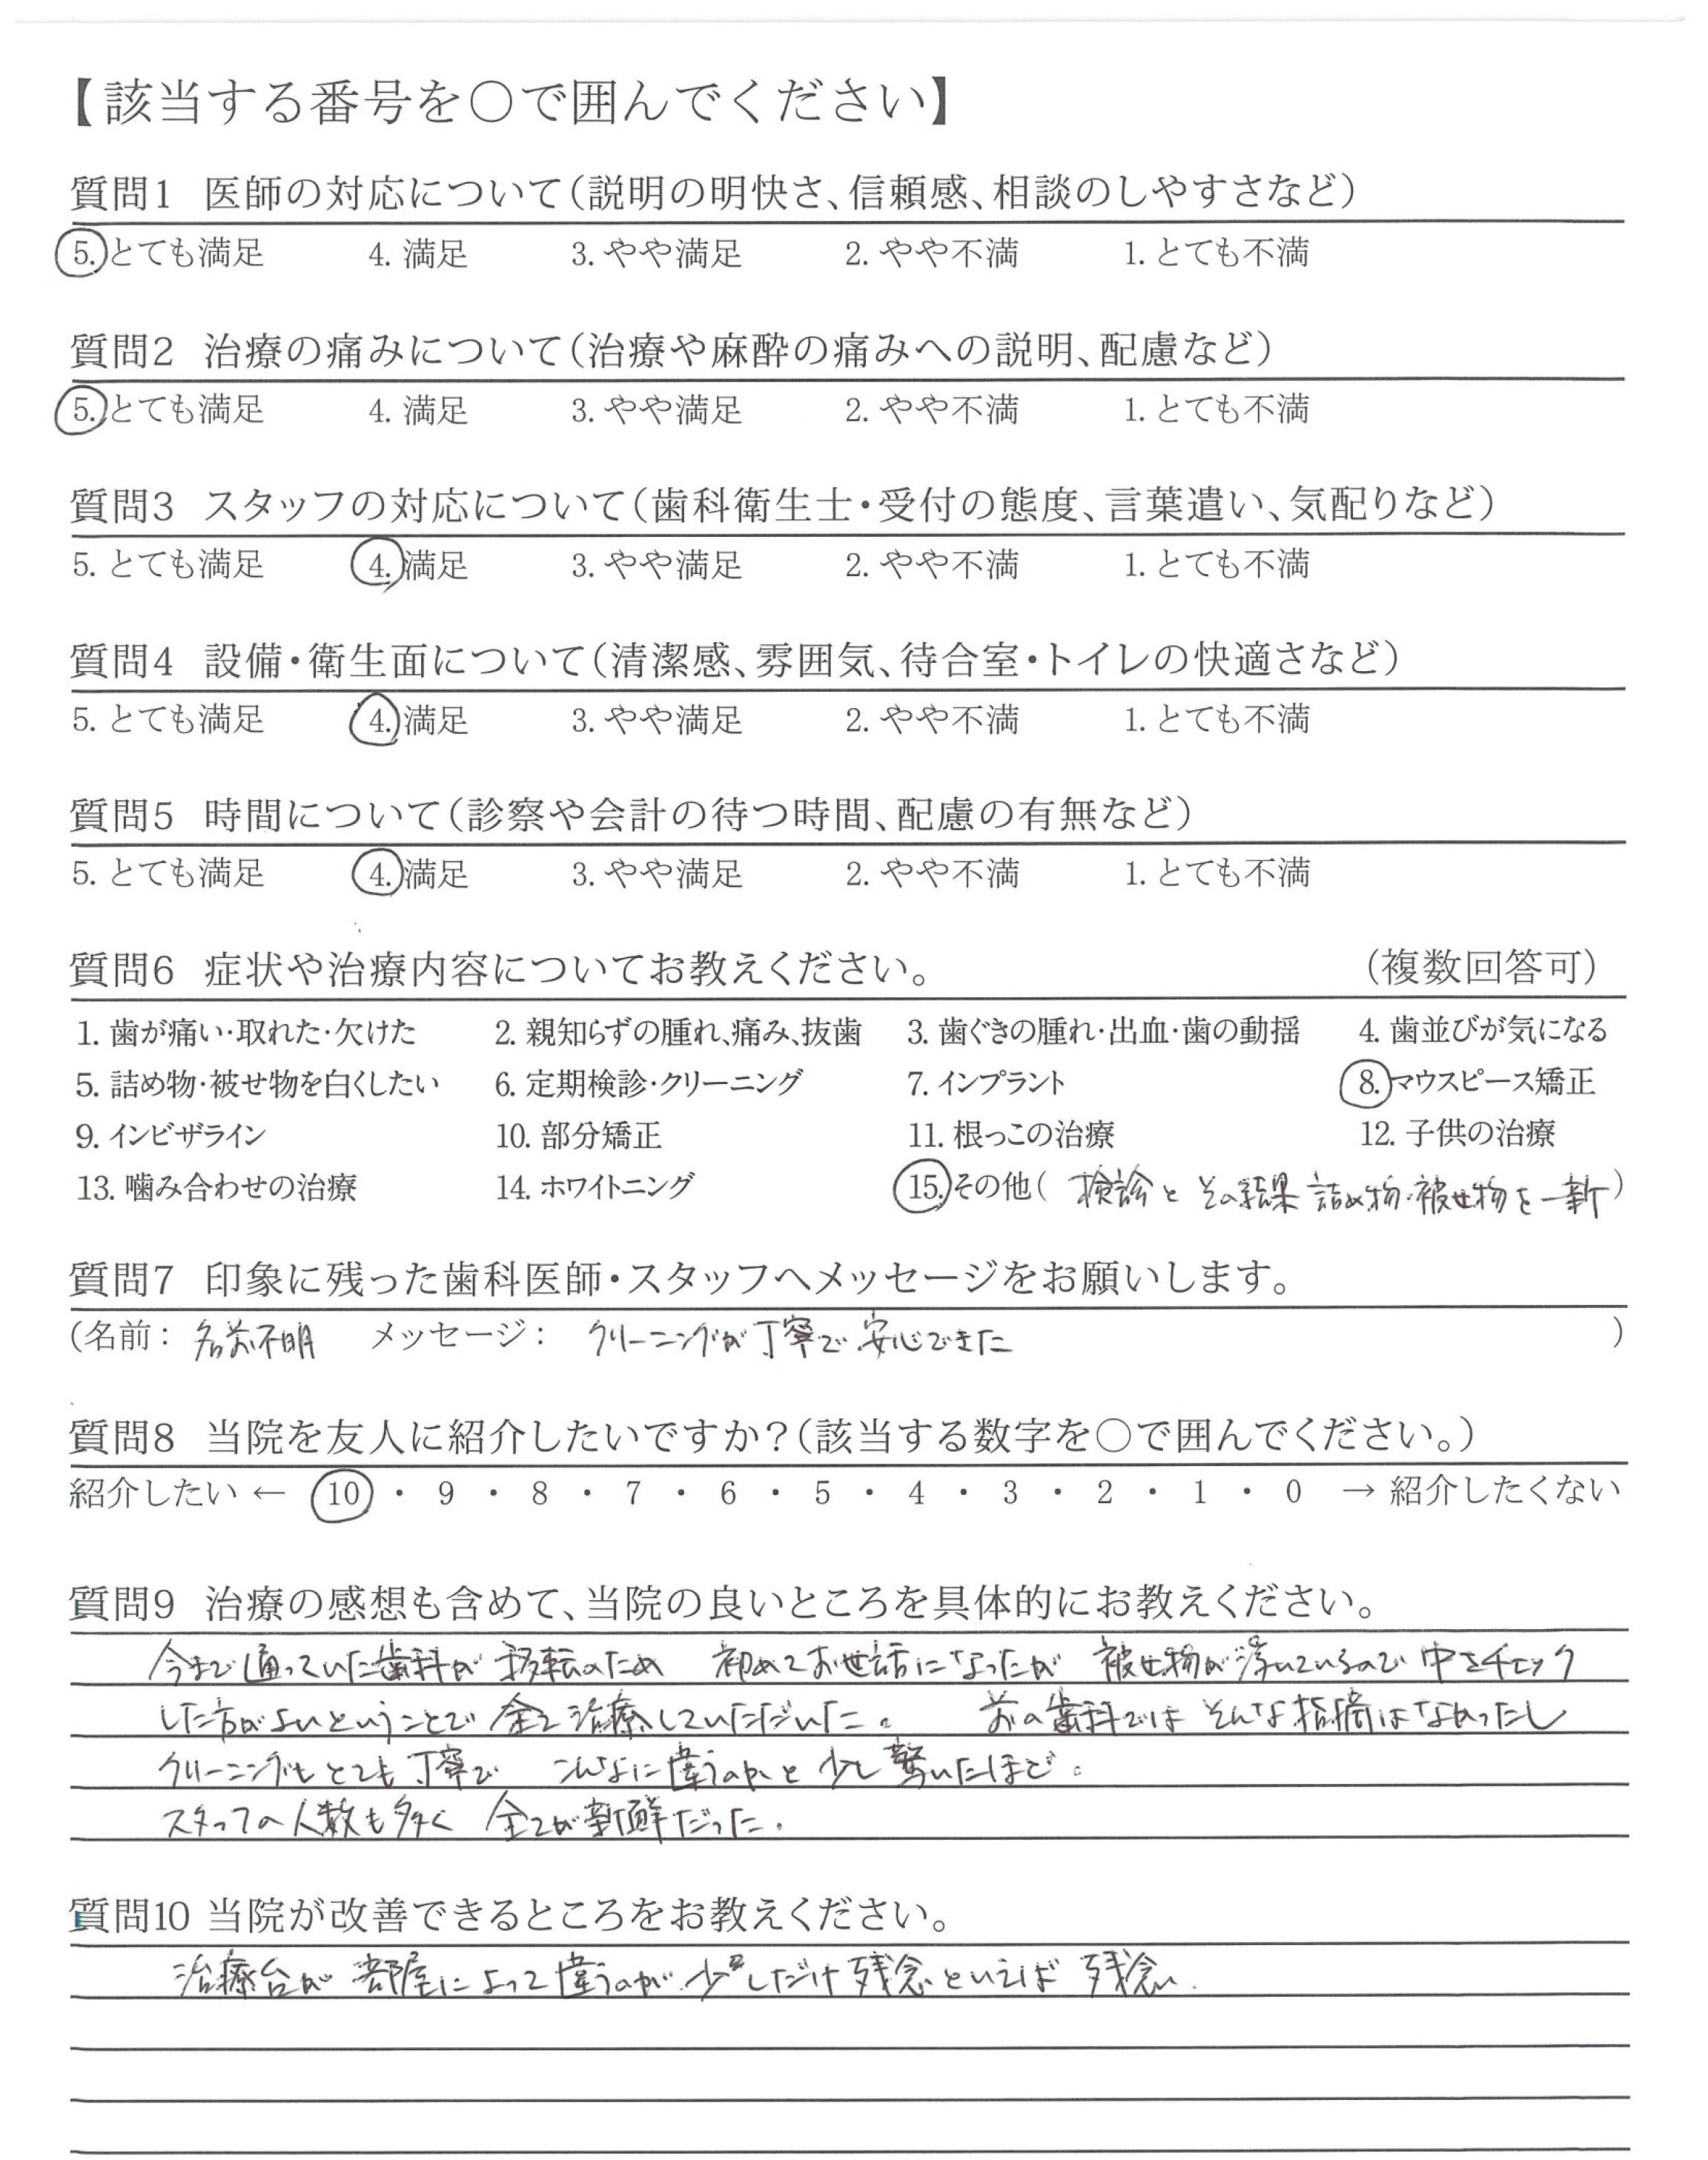 【該当する番号を○で囲んでください】
質問1 医師の対応について(説明の明快さ、信頼感、相談のしやすさなど)
5. とても満足 4. 満足 3. やや満足 2. やや不満 1. とても不満
質問2 治療の痛みについて(治療や麻酔の痛みへの説明、配慮など)
5. とても満足 4. 満足 3. やや満足 2. やや不満 1. とても不満
質問3 スタッフの対応について(歯科衛生士・受付の態度、言葉遣い、気配りなど)
5. とても満足 4. 満足 3. やや満足 2. やや不満 1. とても不満
質問4 設備・衛生面について(清潔感、雰囲気、待合室・トイレの快適さなど)
5. とても満足 4. 満足 3. やや満足 2. やや不満 1. とても不満
質問5 時間について(診察や会計の待つ時間、配慮の有無など)
5. とても満足 4. 満足 3. やや満足 2. やや不満 1. とても不満
質問6 症状や治療内容についてお教えください。 (複数回答可)
1. 歯が痛い・取れた・欠けた 2. 親知らずの腫れ、痛み、抜歯 3. 歯ぐきの腫れ・出血・歯の動揺 4. 歯並びが気になる
5. 詰め物・被せ物を白くしたい 6. 定期検診・クリーニング 7. インプラント 8. マウスピース矯正
9. インビザライン 10. 部分矯正 11. 根っこの治療 12. 子供の治療
13. 噛み合わせの治療 14. ホワイトニング 15. その他( 検診と その結果 詰め物・被せ物を一新 )
質問7 印象に残った歯科医師・スタッフへメッセージをお願いします。
(名前: 名前不明 メッセージ: クリーニングが丁寧で安心できた )
質問8 当院を友人に紹介したいですか?(該当する数字を○で囲んでください。)
紹介したい ← 10 ・ 9 ・ 8 ・ 7 ・ 6 ・ 5 ・ 4 ・ 3 ・ 2 ・ 1 ・ 0 → 紹介したくない
質問9 治療の感想も含めて、当院の良いところを具体的にお教えください。
今まで通っていた歯科が移転のため 初めてお世話になったが 被せ物が浮いているので中をチェック
した方がよいということで全て治療していただいた。 前の歯科ではそんな指摘はなかったし
クリーニングもとても丁寧で こんなに違うのかと少し驚いたほど。
スタッフの人数も多く 全てが新鮮だった.
質問10 当院が改善できるところをお教えください。
治療台が 部屋によって違うのが 少しだけ残念といえば 残念.